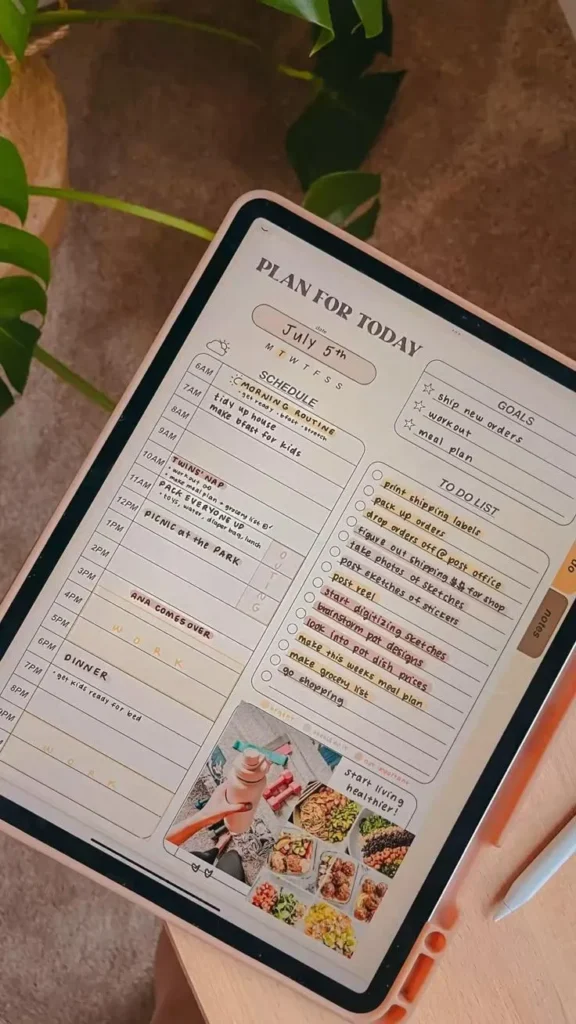 PLAN FOR TODAY
date
July 5th
M T W T F S S
SCHEDULE
6AM
MORNING ROUTINE
• get ready • bfast • stretch
7AM
tidy up house
make bfast for kids
8AM
9AM
10AM
TWINS' NAP
• workout
• make meal plan + grocery list
11AM
PACK EVERYONE UP
• toys, water, diaper bag, lunch
12PM
PICNIC at the PARK
OUTING
1PM
2PM
3PM
4PM
ANA COMES OVER
5PM
WORK
6PM
DINNER
• get kids ready for bed
7PM
8PM
9PM
WORK
GOALS
ship new orders
workout
meal plan
TO DO LIST
print shipping labels
pack up orders
drop orders off @ post office
figure out shipping $$ for shop
take photos of sketches
post sketches of stickers
post reel
start digitizing sketches
brainstorm pot designs
look into pot dish prices
make this weeks meal plan
make grocery list
go shopping
urgent
not important
start living
healthier!
notes